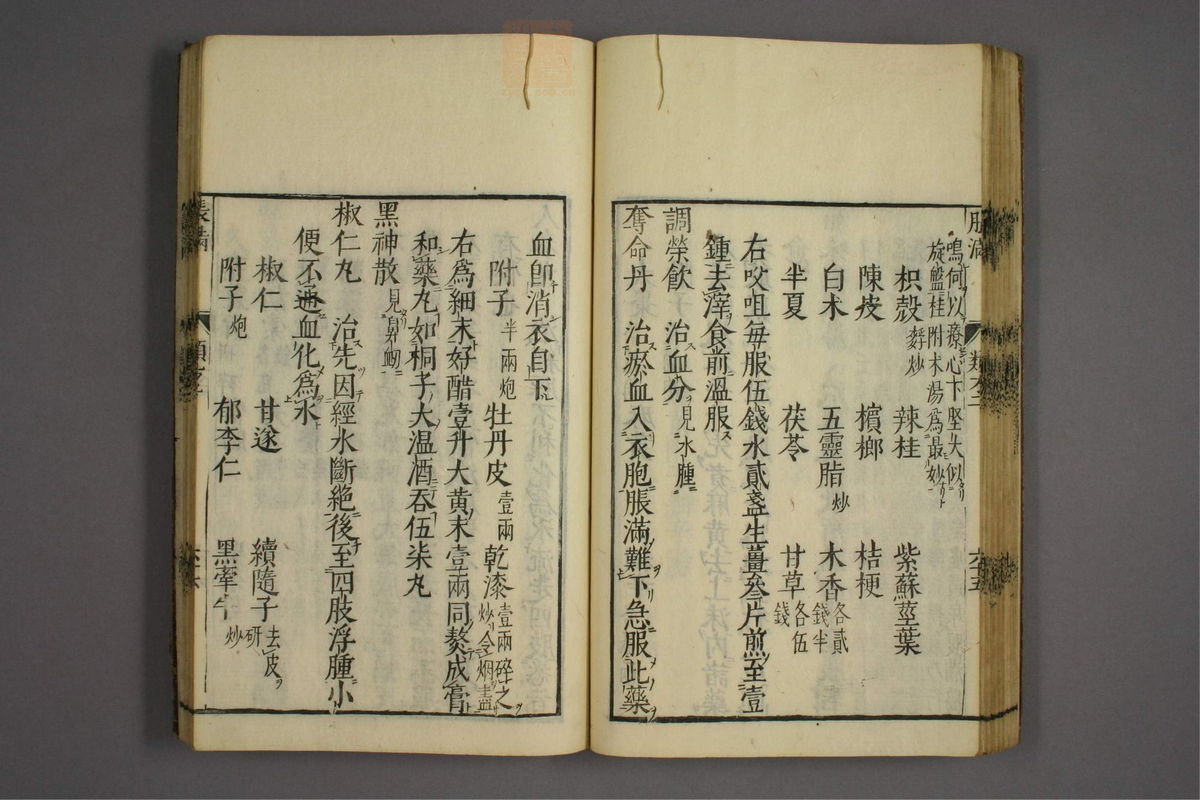 鳴何以療心下堅大似
旋盤桂附朮湯爲最妙
枳殼麩炒 辣桂 紫蘇莖葉
陳皮 檳榔 桔梗
白朮 五靈脂炒 木香各貳錢半
半夏 茯苓 甘草各伍錢
右㕮咀每服伍錢水貳盞生薑叄片煎至壹
鍾去滓食前溫服
調榮飲 治血分見水腫
奪命丹 治瘀血入衣胞脹滿難下急服此藥
血卽消衣自下
附子半兩炮 牡丹皮壹兩 乾漆壹兩碎之炒令烟盡
右爲細末好醋壹升大黄末壹兩同熬成膏
和藥丸如桐子大温酒吞伍柒丸
黑神散見鼻衂
椒仁丸 治先因經水斷絕後至四肢浮腫小
便不通血化爲水
椒仁 甘遂 續隨子去皮研
附子炮 郁李仁 黑牽牛炒
脹滿
六十六